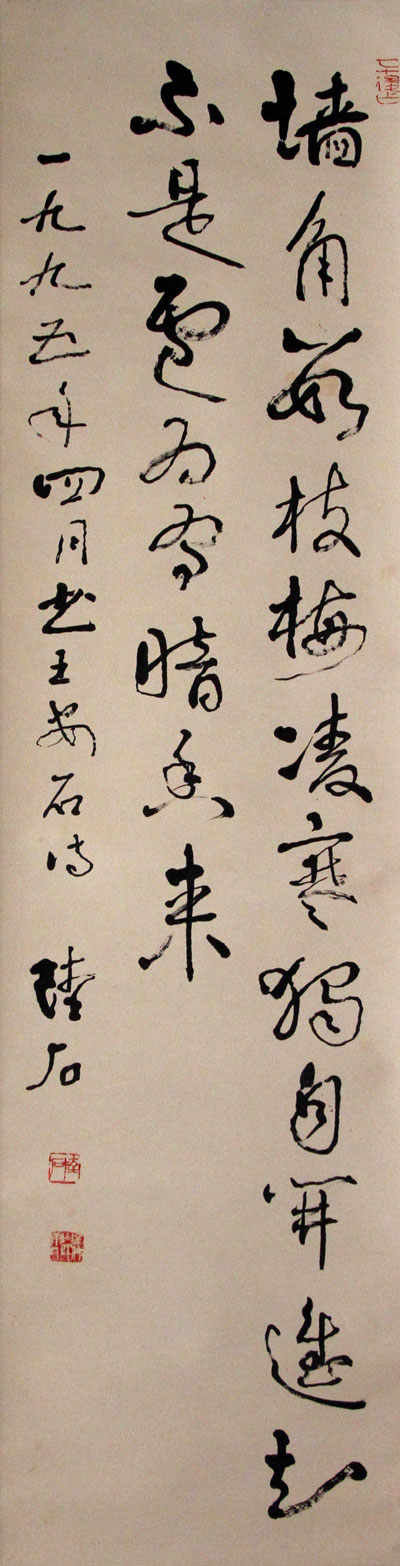 墙角数枝梅凌寒獨自開遥知
不是雪为有暗香来
一九九五年四月书王安石诗 陸石